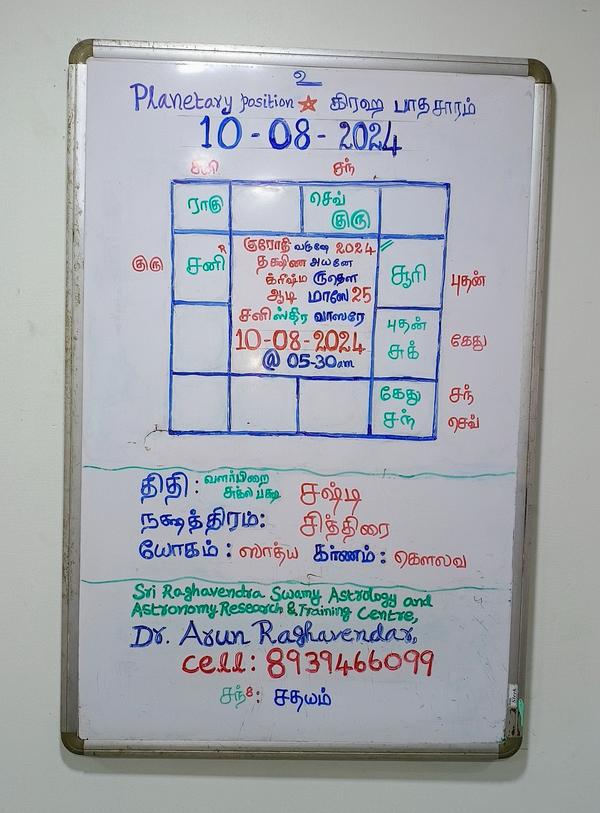 உ
Planetary position கிரஹ பாதசாரம்
10-08-2024
சனி சந்
ராகு செவ் குரு
குரோதி வருஷே 2024
தக்ஷிண அயனே
க்ரீஷ்ம ருதௌ
ஆடி மாஸே 25
சனி ஸ்திர வாஸரே
10-08-2024
@ 05-30am
குரு சனி R சூரி புதன்
புதன் சுக் கேது
கேது சந் சந் செவ்
திதி : வளர்பிறை சுக்ல பக்ஷ சஷ்டி
நக்ஷத்திரம்: சித்திரை
யோகம் : ஸாத்ய கர்ணம் : கௌலவ
Sri Raghavendra Swamy, Astrology and
Astronomy, Research & Training Centre,
Dr. Arun Raghavendar,
cell: 8939466099
சந்8: சதயம்